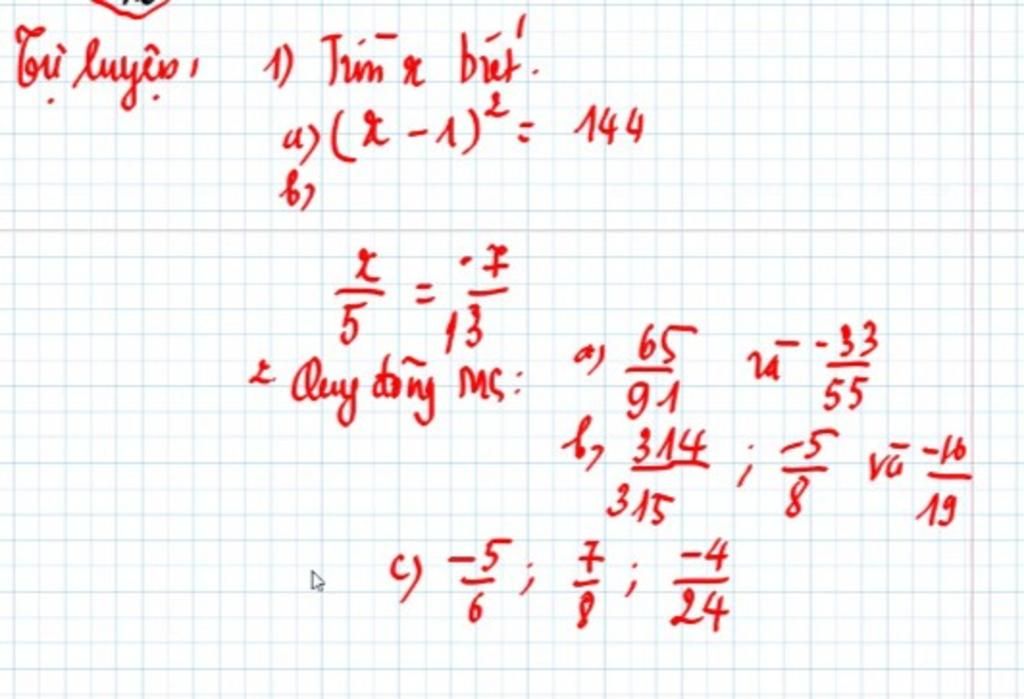 Tự luyện, 1) Tìm x biết.
a) (x - 1)² = 144
b)
x/5 = -7/13
2 Quy đồng MS: a) 65/91 và -33/55
b, 314/315 ; -5/8 và -16/19
c) -5/6 ; 7/8 ; -4/24